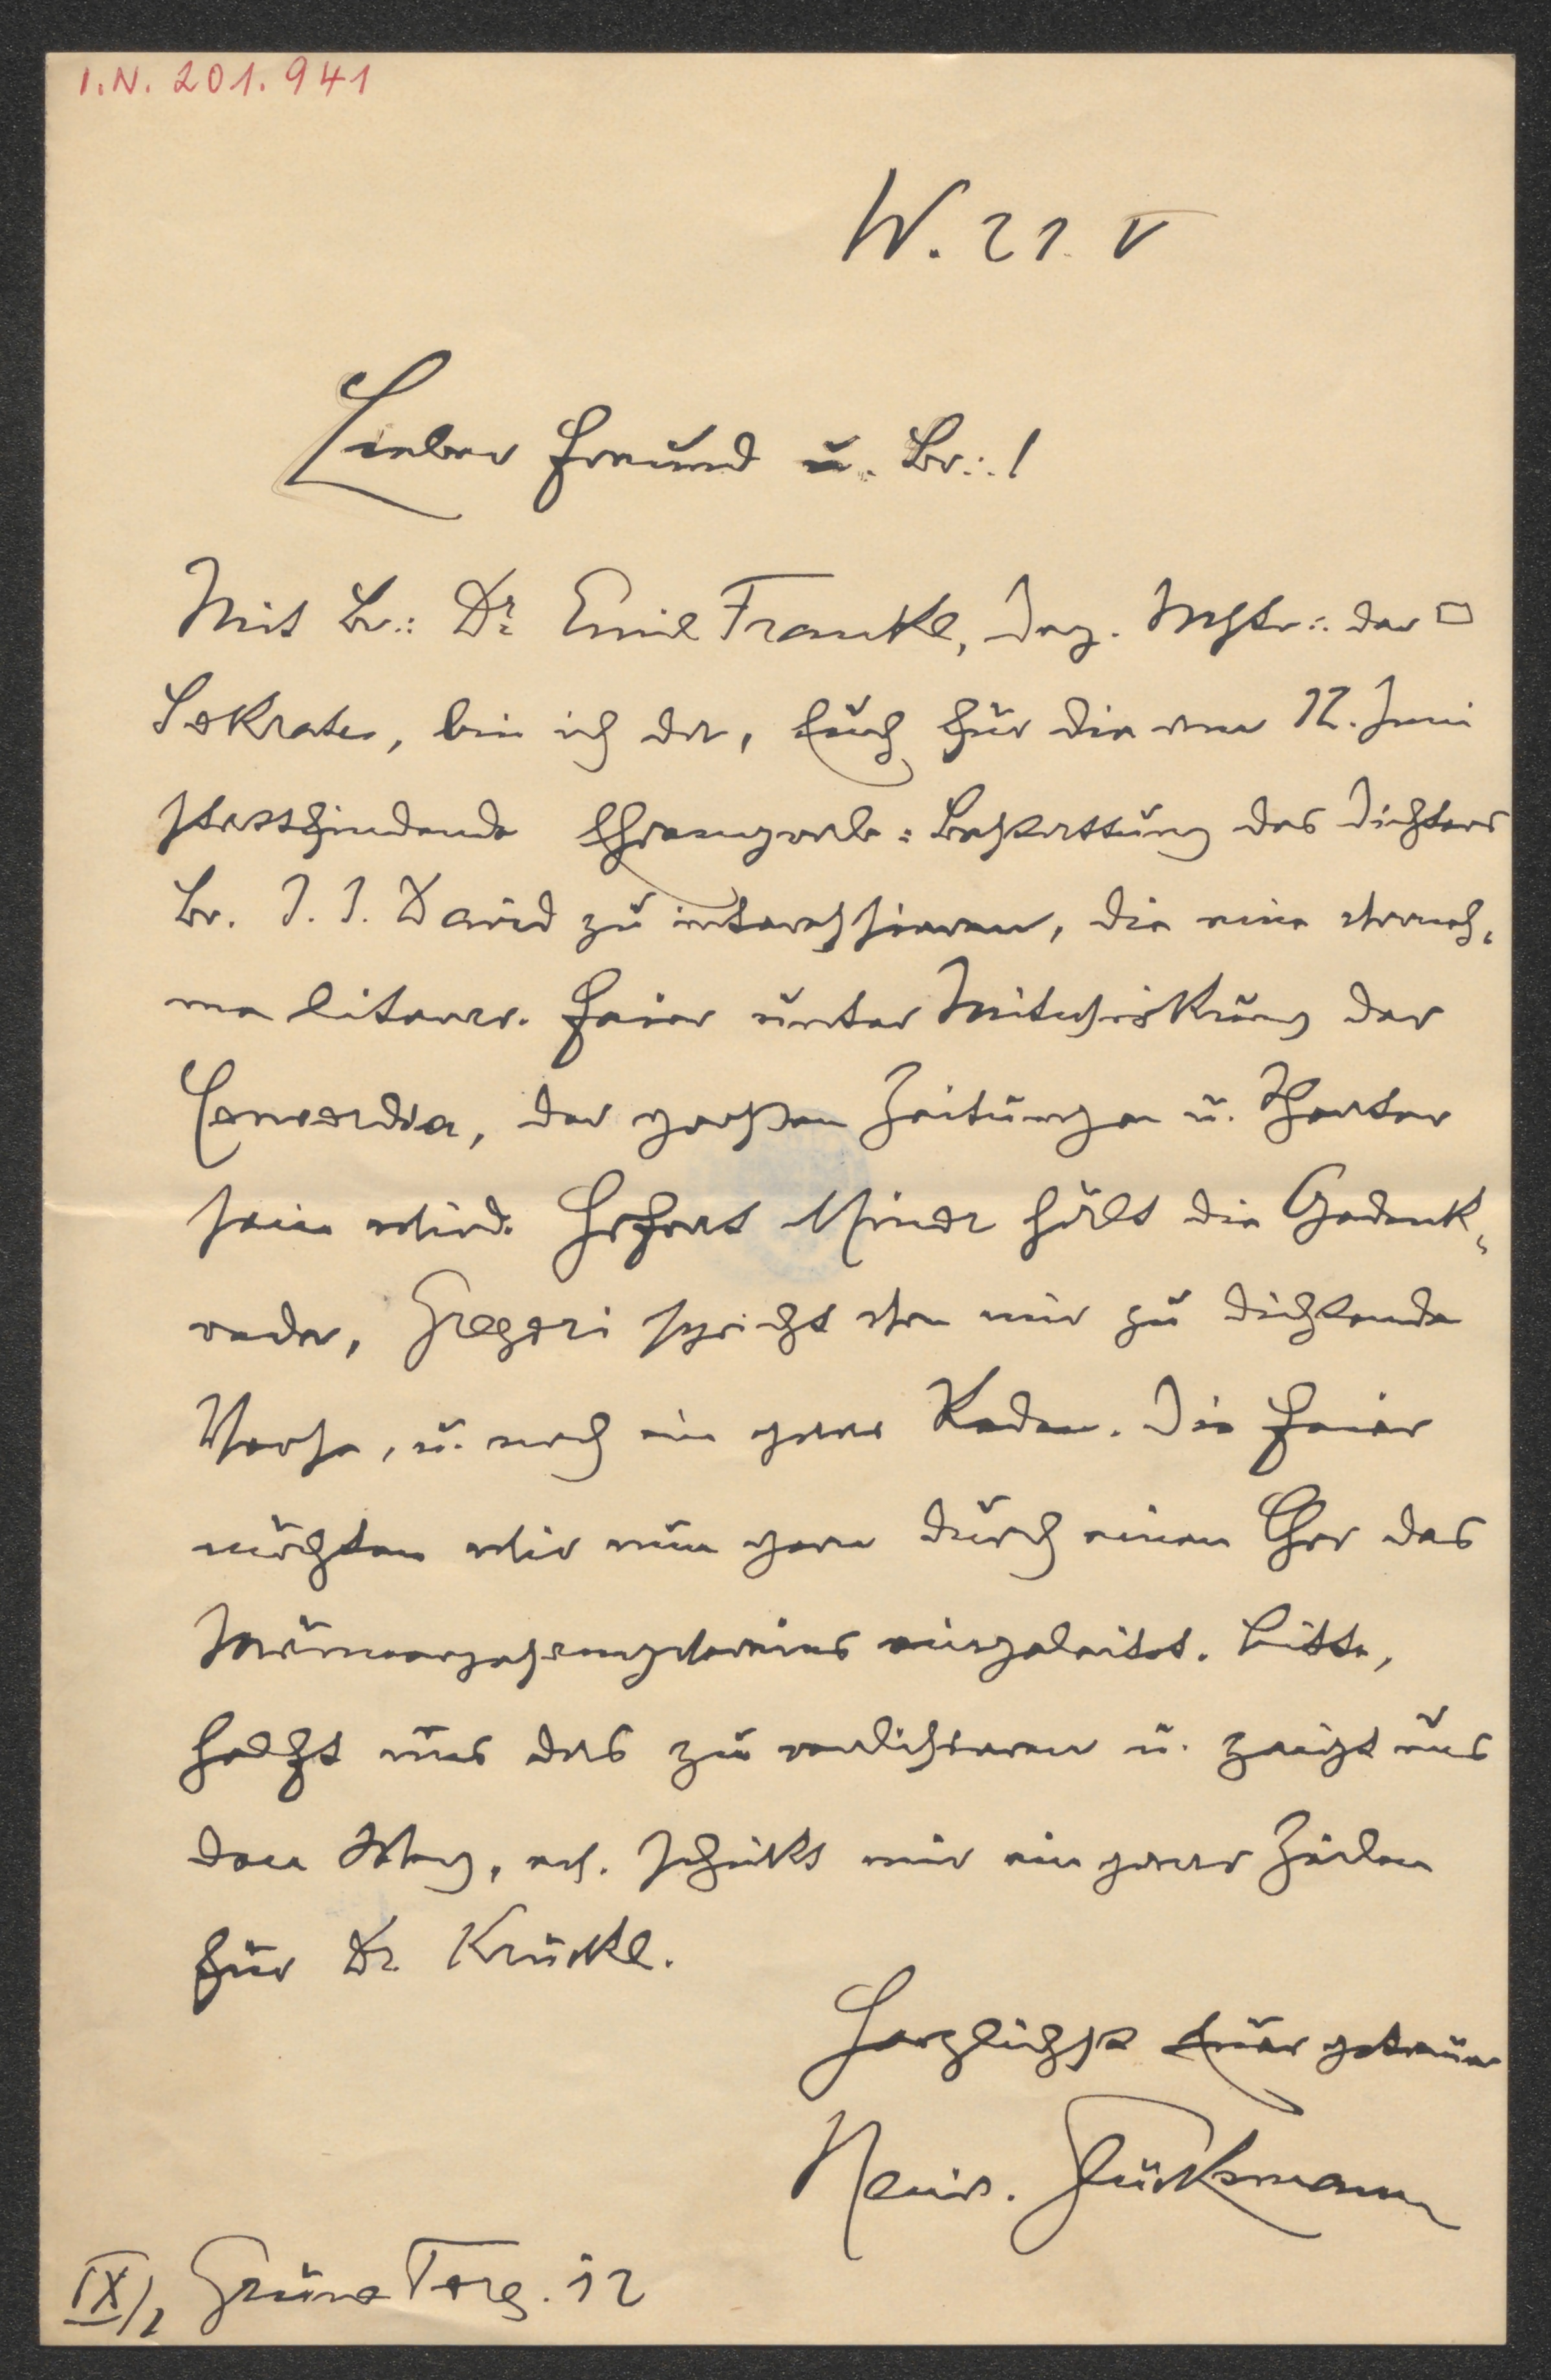 I.N. 201.941
W. 21. V
Lieber Freund u. Br∴!
Mit Br∴ Dr. Emil Franckl, Dep. Mstr∴ der □
Sokrates, bin ich da, Euch für die am 12. Juni
stattfindende Ehrengrab-Bestattung des Dichters
Br. J. J. David zu interessieren, die eine vorneh-
me literar. Feier unter Mitwirkung der
Concordia, der großen Zeitungen u. Theater
sein wird. Hofrat Minor hält die Gedenk-
rede, Gregori spricht von mir zu dichtende
Verse, u. noch ein paar Reden. Die Feier
möchten wir nun gern durch einen Chor des
Männergesangvereins eingeleitet. Bitte,
helft uns das zu realisieren u. zeigt uns
den Weg, ev. schickt mir ein paar Zeilen
für Dr. Krückl.
Herzlichst Euer getreuer
Heinr. Glücksmann
IX/1 Grüne Torg. 12